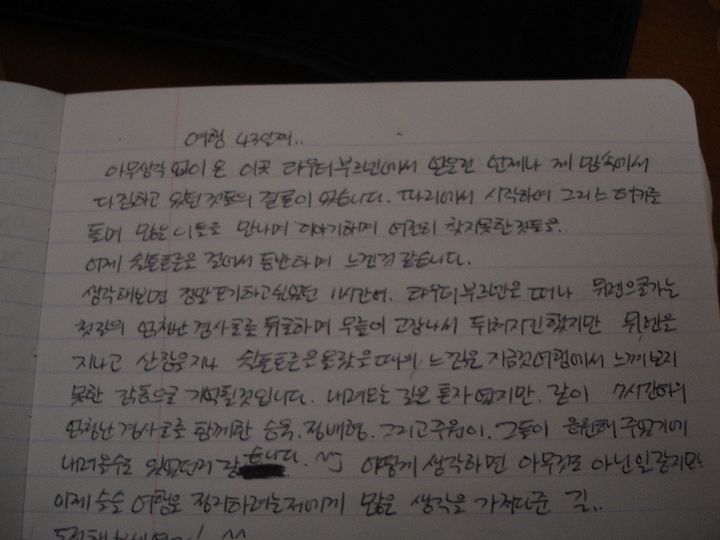 여행 43일째..
아무생각 없이 온 이곳 라우터부르넨에서 얻은건 언제나 제 맘속에서
다짐하고 있던 것들의 결론이 있습니다. 파리에서 시작하여 그리스 터키를
돌며 많은 이들을 만나며 이야기하며 여전히 찾지못한 것들을.
어제 쉴트호른을 걸어서 등반하며 느낀것 같습니다.
생각해보면 정말 포기하고 싶었던 11시간여. 라우터부르넨을 떠나 뮈렌으로가는
첫길의 엄청난 경사로로 뒤로하며 무릎이 고장나서 뒤쳐지긴 했지만 뮈렌을
지나고 산장을지나 쉴트호른을올랐을때의 느낌은 지금껏여행에서 느껴보지
못한 감동으로 기억될것입니다. 내려오는 길은 혼자 였지만. 같이 7시간여의
엄청난 경사로를 함께한 승욱, 정배형, 그리고 주원이. 그들이 응원해 주었기에
내려올수 있었던거 같습니다. ^^ 어떻게 생각하면 아무것도 아닌일같지만
이제 슬슬 여행을 정리하려는저에게 많은 생각을 가져다준 길..